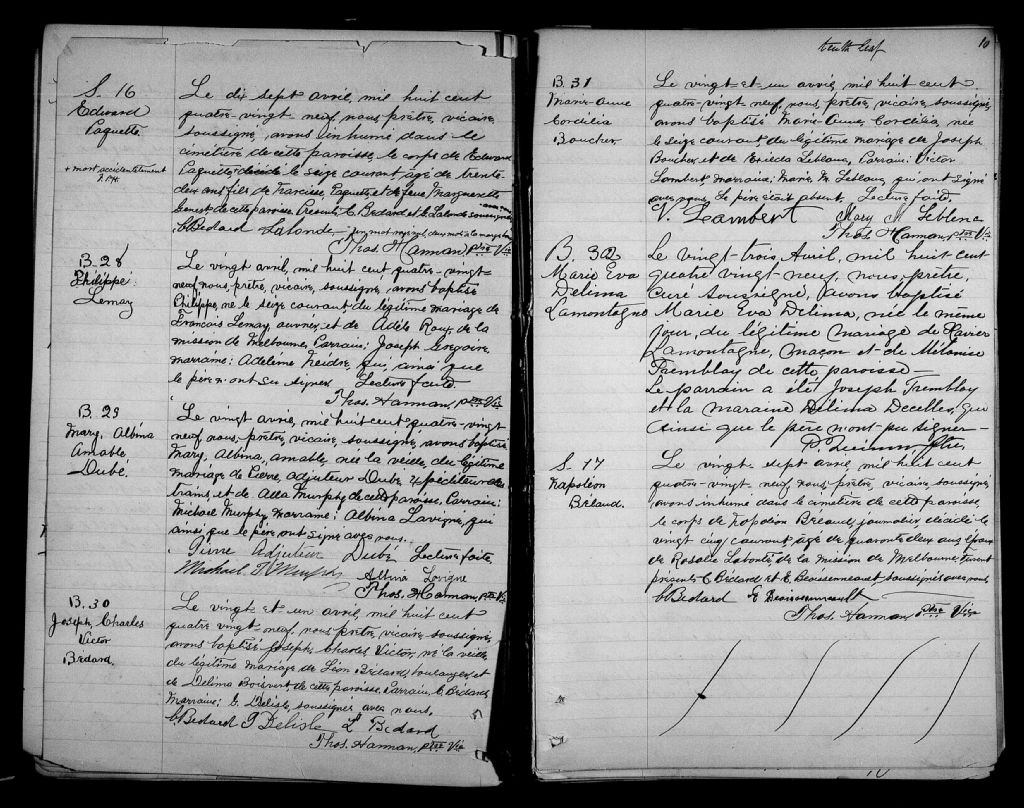 S. 16
Edward
Paquette
+ mort accidentellement
Le dix sept avril, mil huit cent
quatre-vingt neuf, nous, prêtre, vicaire,
soussigné, avons inhumé dans le
cimetière de cette paroisse, le corps de Edward
Paquette, décédé le seize courant, agé de trente-
deux ans, fils de Narcisse Paquette, et de feue Marguerite
de cette paroisse. Présents, C. Bédard et E. Lalonde, soussignés
C Bedard Lalonde
Thos. Hannan, ptre Vic
B. 28
Philippe
Lemay
Le vingt avril, mil huit cent quatre-vingt
neuf, nous, prêtre, vicaire, soussigné, avons baptisé
Philippe, né le seize courant, du légitime mariage de
François Lemay, ouvrier, et de Adèle Roy, de la
mission de Melbourne, Parrain: Joseph Grégoire,
marraine: Adeline qui, ainsi que
le père n'ont su signer Lecture faite
Thos. Hannan, ptre Vic
B. 29
Mary, Albina
Amable
Dubé.
Le vingt avril, mil huit cent quatre-vingt
neuf, nous, prêtre, vicaire, soussigné, avons baptisé
Mary, Albina, amable, née la veille, du légitime
mariage de Pierre, adjuteur Dubé, des
trains, et de Alla Murphy de cette paroisse. Parrain:
Michael Murphy, marraine: Albina Lavigne, qui
ainsi que le père, ont signé avec nous.
Pierre Adjuteur Dubé Lecture faite
Michael Murphy
Albina Lavigne
Thos. Hannan, ptre Vic
B. 30
Joseph, Charles
Victor
Bédard.
Le vingt et un avril, mil huit cent
quatre vingt-neuf, nous, prêtre, vicaire, soussigné,
avons baptisé Joseph, Charles Victor, né la veille
du légitime mariage de Léon Bédard, boulanger, et
de Délima Boisvert de cette paroisse. Parrain, C. Bédard,
Marraine: G. Delisle, soussignés avec nous,
C Bedard G Delisle Ln Bedard
Thos. Hannan, ptre Vic
tenth leaf
10
B. 31
Marie-Anne
Cordilia
Boucher,
Le vingt et un avril, mil huit cent
quatre-vingt neuf, nous, prêtre, vicaire, soussigné,
avons baptisé Marie-Anne, Cordilia, née
le seize courant, du légitime mariage de Joseph
Boucher, et de Leblanc, Parrain: Victor
Lambert, marraine: Marie M. Leblanc, qui ont signé
avec nous. Le père était absent. Lecture faite.
V. Lambert Mary M. Leblanc
Thos. Hannan, ptre Vic
B. 32
Marie Eva
Delima
Lamontagne
Le vingt-trois Avril, mil huit cent
quatre vingt-neuf, nous, prêtre,
curé soussigné, avons baptisé
Marie Eva Delima, née le même
jour, du légitime mariage de Xavier
Lamontagne, maçon et de Mélanise
Tremblay de cette paroisse—
Le parrain a été Joseph Tremblay
et la maraine Délima Decelles, qui
ainsi que le père n'ont pu signer—
P. Quinn Ptre
S. 17
Napoléon
Béland.
Le vingt sept avril mil huit cent
quatre-vingt neuf, nous, prêtre, vicaire, soussigné
avons inhumé dans le cimetière de cette paroisse,
le corps de Napoléon journalier, décédé le
vingt cinq courant, agé de quarante deux ans, époux
de Rosalie Labonté de la mission de Melbourne. Furent
présents C. Bédard et E. Boissonneault, soussignés avec nous,
C Bedard E Boissonneault
Thos. Hannan, ptre Vic